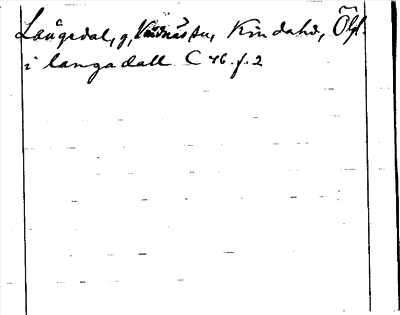 Långedal, g, Kindnäs sn, Kinds hd, Ögl.
i langadall C 46. f. 2